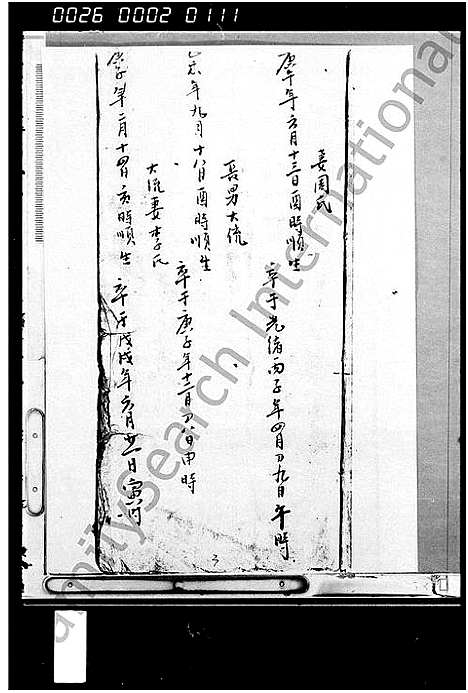 0026 0002 0111
妻周氏
庚午年六月十三日酉時順生 卒于光緒丙子年四月初九日午時
長男大流
乙亥年九月十八日酉時順生 卒于庚子年十二月初八日申時
大流妻李氏
年二月十四日亥時順生 卒于戊戌年六月廿一日寅時
FamilySearch International